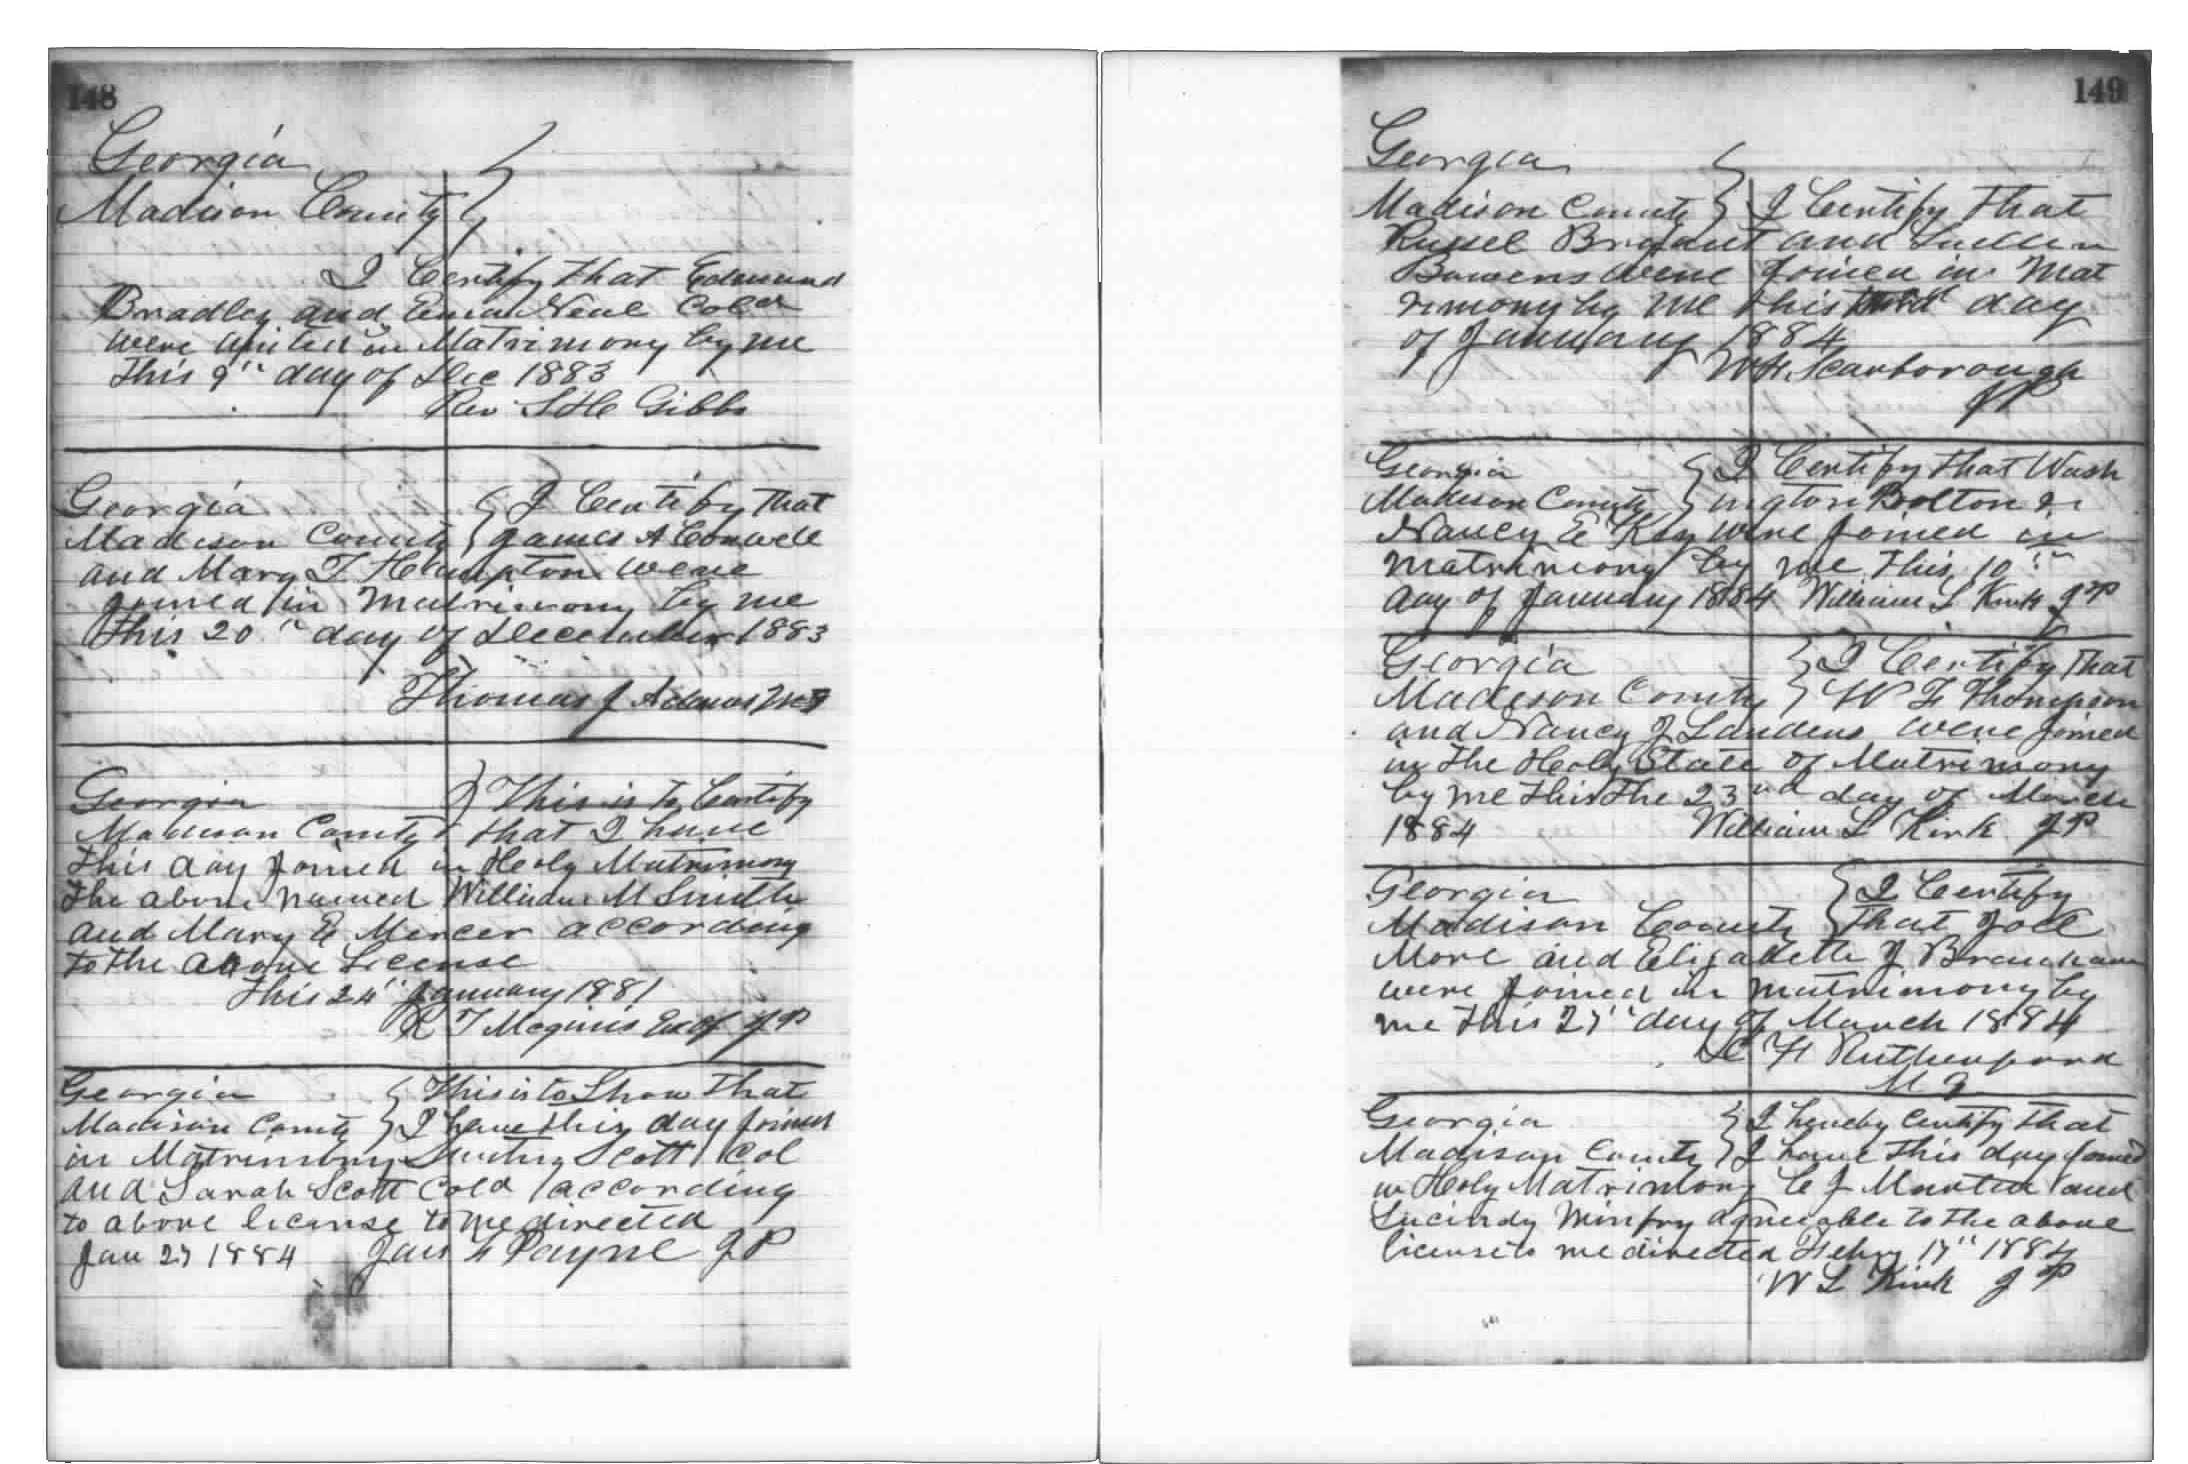 148
Georgia
Madison County
I Certify that Edmund
Bradley and Emma Neal Cold
were united in Matrimony by me
this 9th day of Dec 1883
Rev S H Gibbs
Georgia
Madison County
I Certify that
James A Conwell
and Mary T Hampton were
joined in Matrimony by me
this 20th day of December 1883
Thomas J Adams MG
Georgia
Madison County
This is to Certify
that I have
this day joined in Holy Matrimony
the above named William M Smith
and Mary E Mercer according
to the above License
this 24th January 1881
R T Meginis Exof JP
Georgia
Madison County
This is to Show that
I have this day joined
in Matrimony Scott Col
and Sarah Scott Cold according
to above license to me directed
Jan 27 1884 Jas Payne JP
149
Georgia
Madison County
I Certify that
Russel Bryant and Suellen
Bowens were Joined in Mat
rimony by me this day
of January 1884
W H Scarborough
JP
Georgia
Madison County
I Certify that Wash
ington Bolton &
Nancy E Key were Joined in
matrimony by me this 10th
day of January 1884 William L Kirk JP
Georgia
Madison County
I Certify that
W F Thompson
and Nancy J Landers were joined
in the Holy State of Matrimony
by me this the 23rd day of March
1884 William L Kirk JP
Georgia
Madison County
I Certify
that Joel
More and Elizabeth J Branham
were Joined in matrimony by
me this 27th day of March 1884
H Rutherford
M G
Georgia
Madison County
I hereby Certify that
I have this day joined
in Holy Matrimony C J Martin and
Lucindy Minfry agreeable to the above
license to me directed Febry 17th 1884
W L Kirk JP